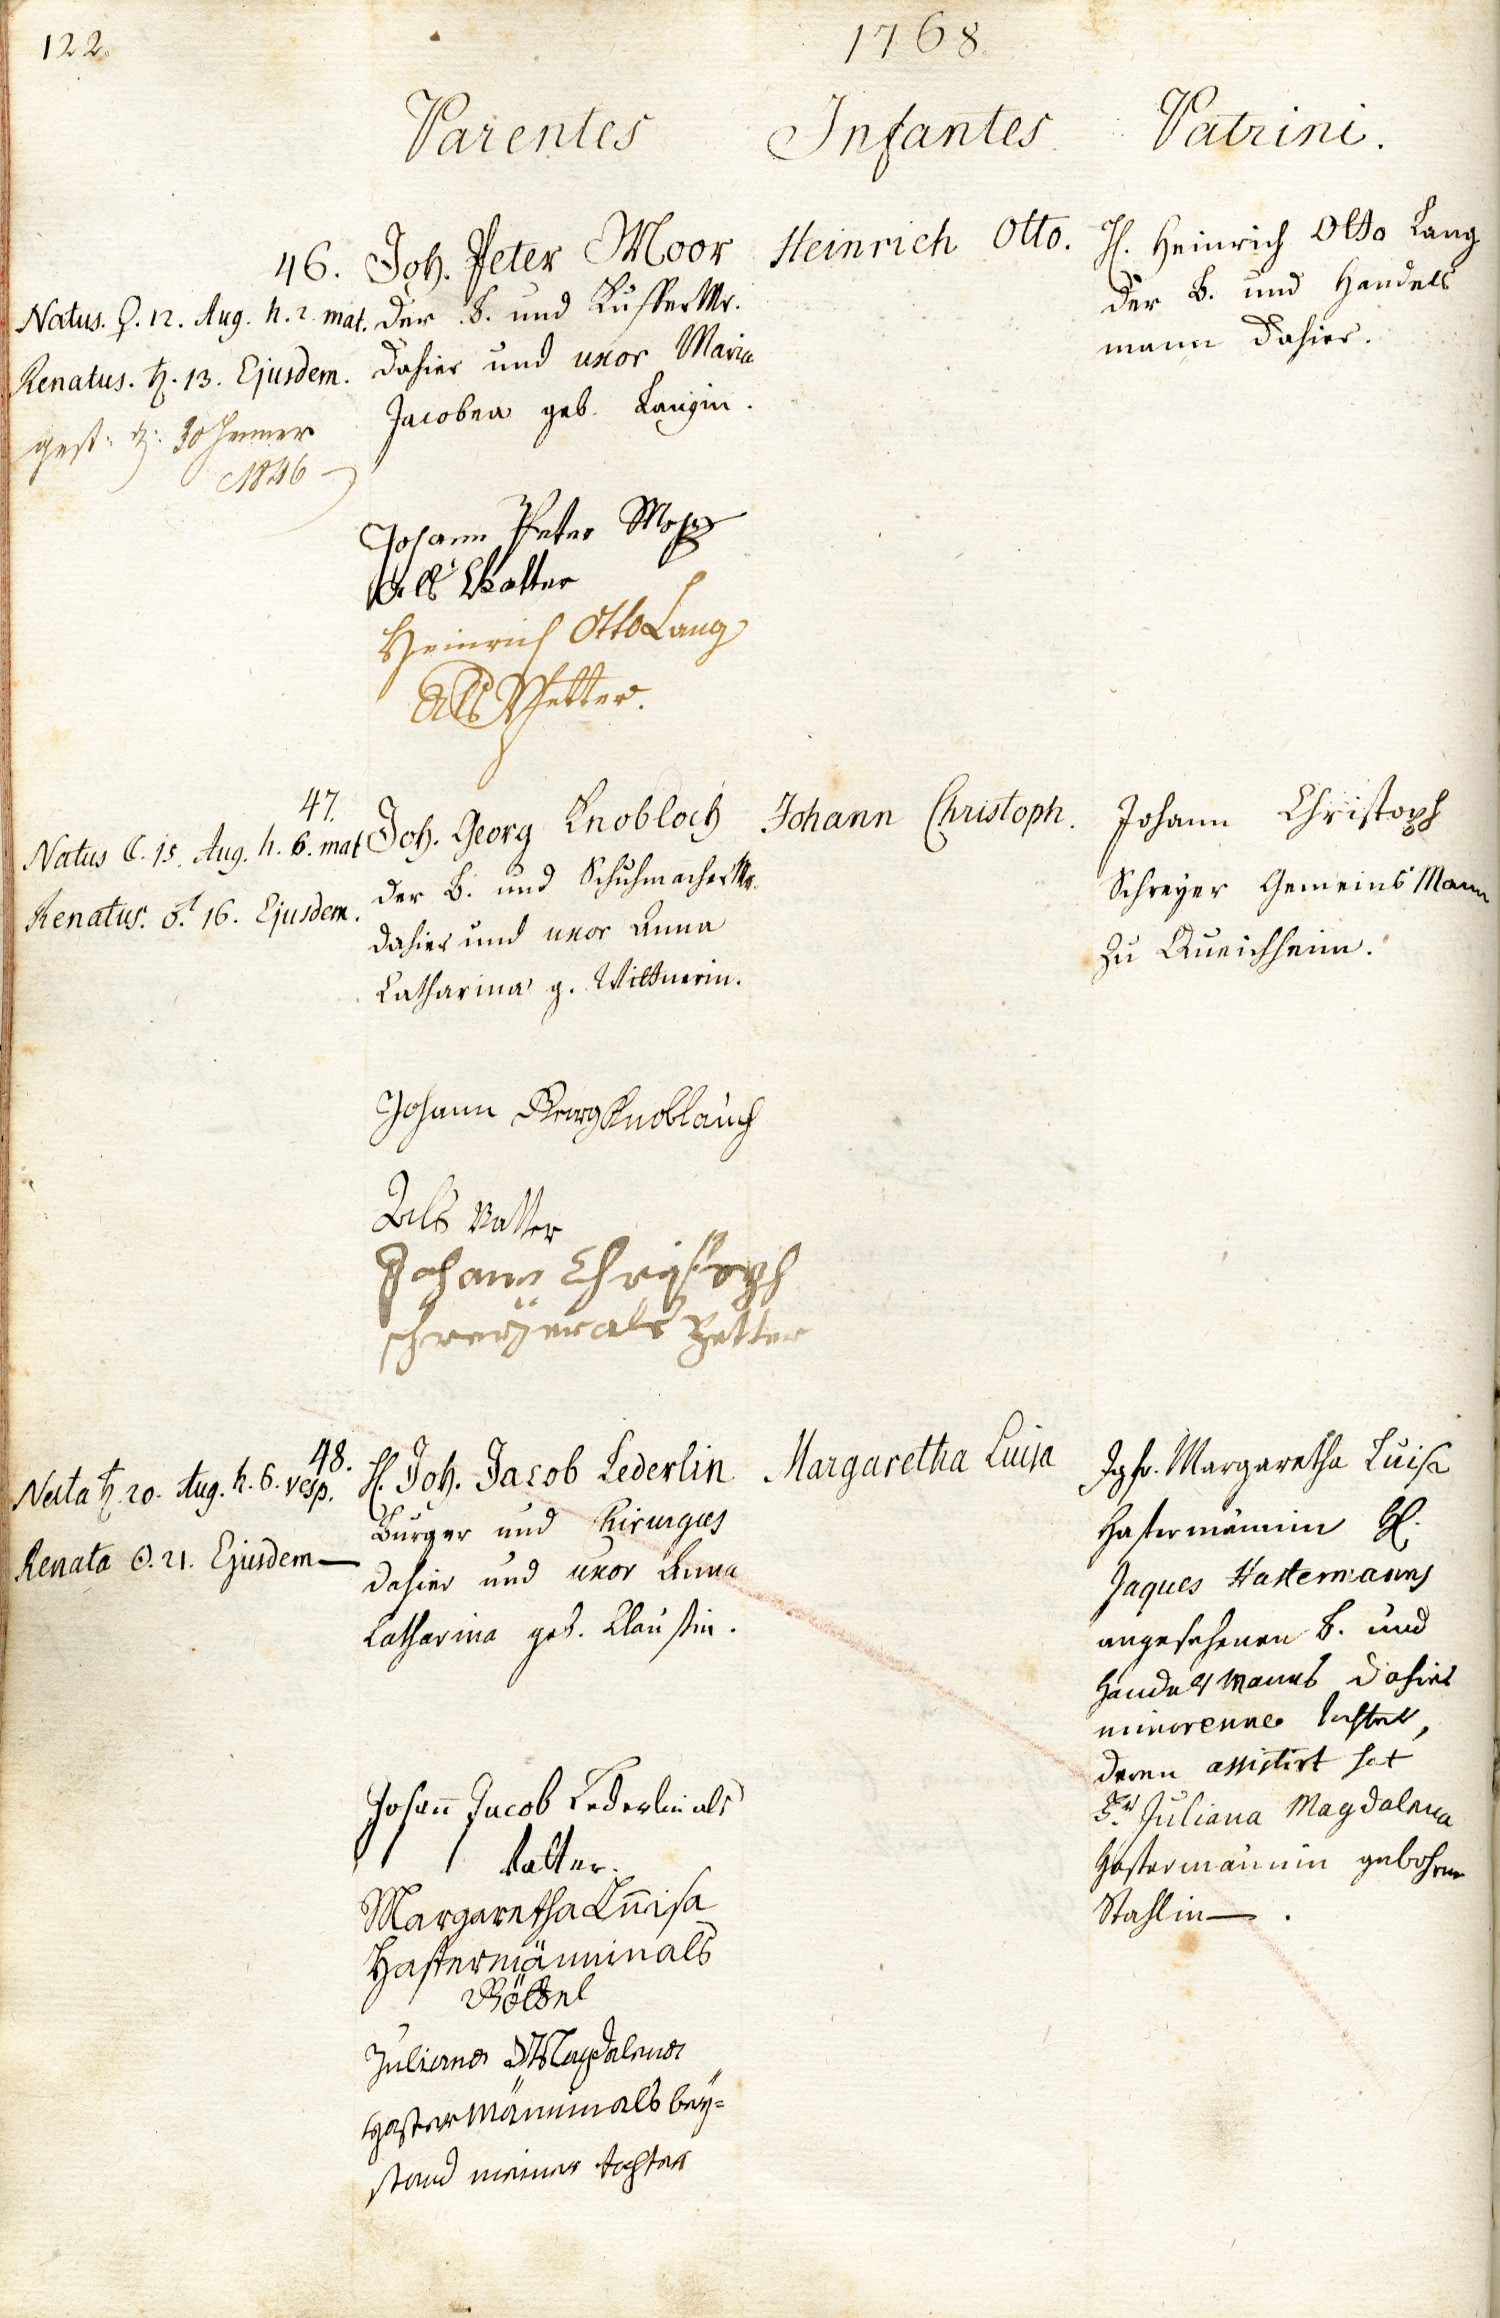 122.
1768.
Parentes
Infantes
Patrini.
46.
Natus. ♀. 12. Aug. h. 2. mat.
Renatus. ♄. 13. Ejusdem.
gest: ♄: 30 Jenner
1846
Joh. Peter Moor
der B. und KüfferMr.
dahier und uxor Maria
Jacobea geb. Langin.
Heinrich Otto.
H. Heinrich Otto Lang
der B. und Handels
mann dahier.
Johann Peter Mohr
Als Vatter
Heinrich Otto Lang
Als Pfetter.
47.
Natus ☾. 15. Aug. h. 6. mat
Renatus. ♂. 16. Ejusdem.
Joh. Georg Knobloch
der B. und SchuhmacherMr.
dahier und uxor Anna
Catharina g. Wittnerin.
Johann Christoph.
Johann Christoph
Schreyer Gemeins Mann
zu Queichheim.
Johann Georg Knoblauch
Als Vatter
Johann Christoph
schreÿer als Petter
48.
Nata ♄. 20. Aug. h. 6. vesp.
Renata ☉. 21. Ejusdem—
H. Joh. Jacob Lederlin
Burger und Chirurgus
dahier und uxor Anna
Catharina geb. Claussin.
Margaretha Luisa
Jgfr. Margaretha Luisa
Hastermännin H.
Jaques Hastermanns
angesehenen B. und
Handelsmanns dahier
minorenne tochter,
deren assistirt hat
Fr. Juliana Magdalena
Hastermännin gebohrne
Stahlin— .
Johann Jacob Lederlin als
Vatter.
Margaretha Luisa
Hastermännin als
Göttel
Juliana Magdalena
Hastermännin als bey=
stand meiner tochter